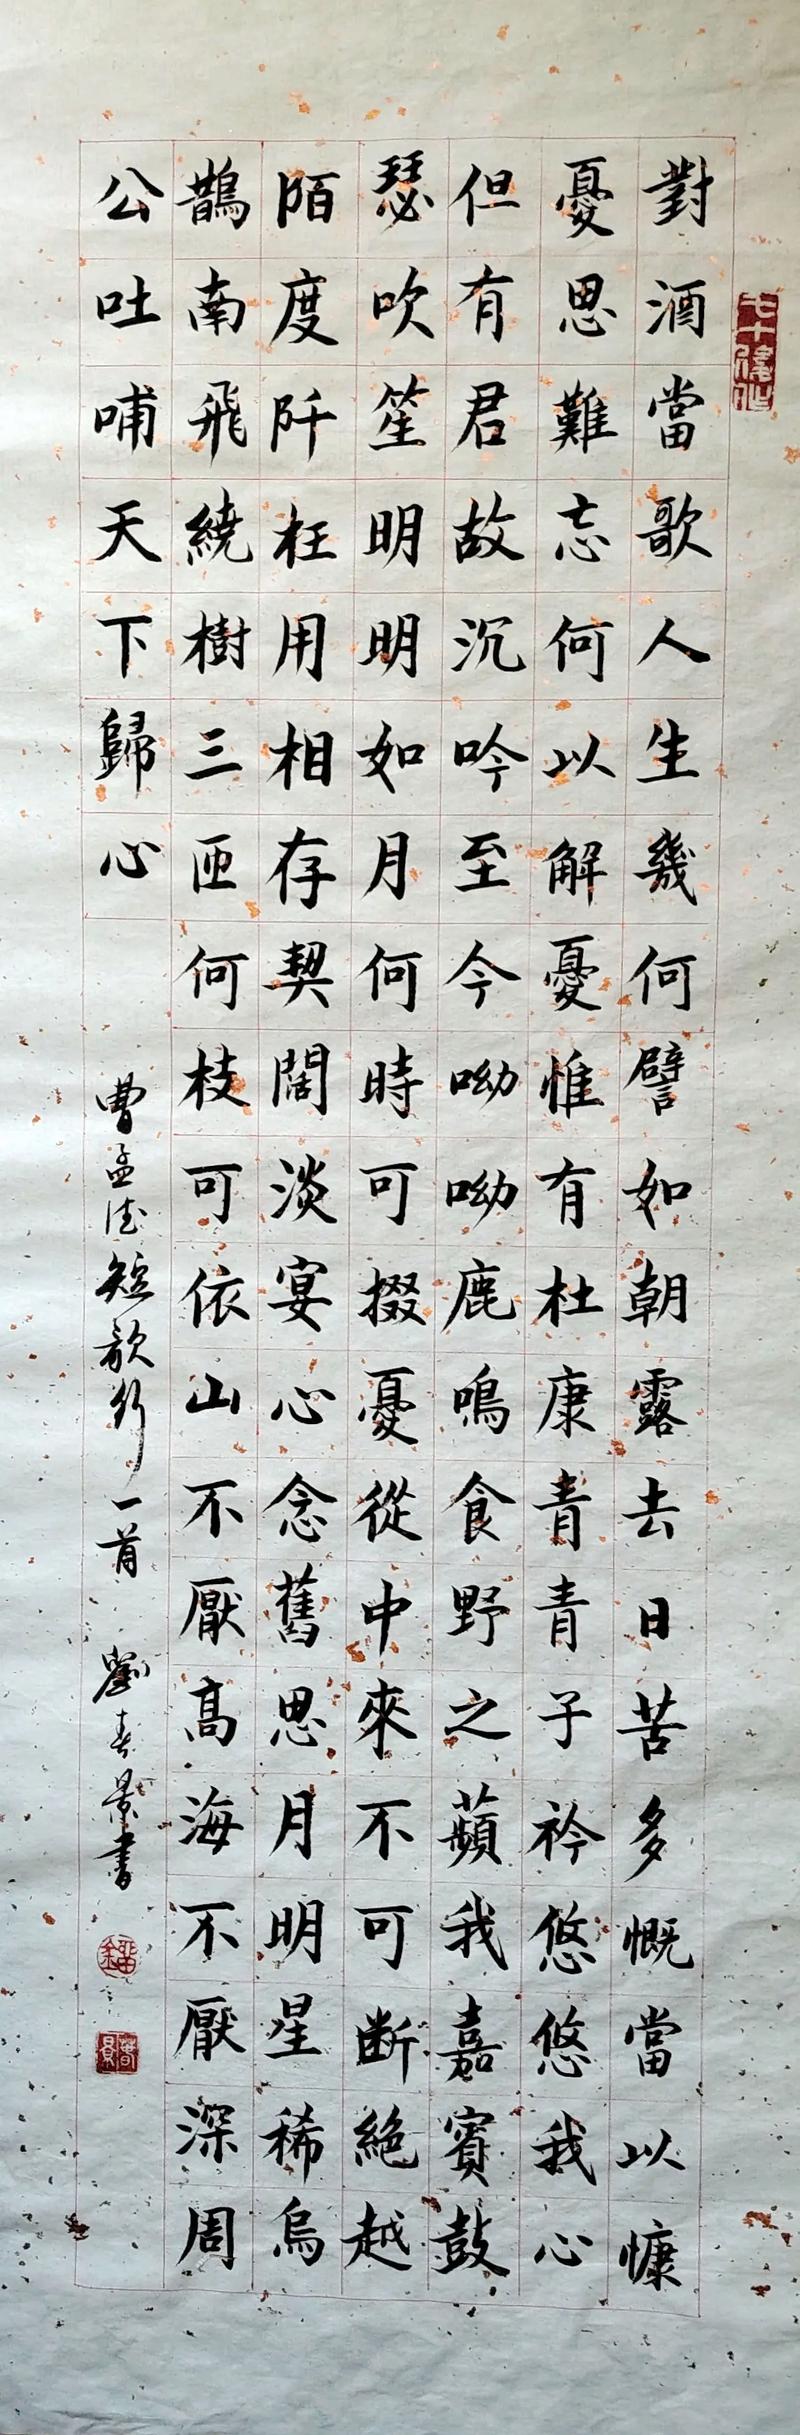 對酒當歌人生幾何譬如朝露去日苦多慨當以慷
憂思難忘何以解憂惟有杜康青青子衿悠悠我心
但有君故沉吟至今呦呦鹿鳴食野之蘋我嘉賓鼓
瑟吹笙明明如月何時可掇憂從中來不可断絕越
陌度阡枉用相存契闊淡宴心念舊思月明星稀烏
鵲南飛繞樹三匝何枝可依山不厭高海不厭深周
公吐哺天下歸心
曹孟德短歌行一首 劉春景書
七十後作
春景